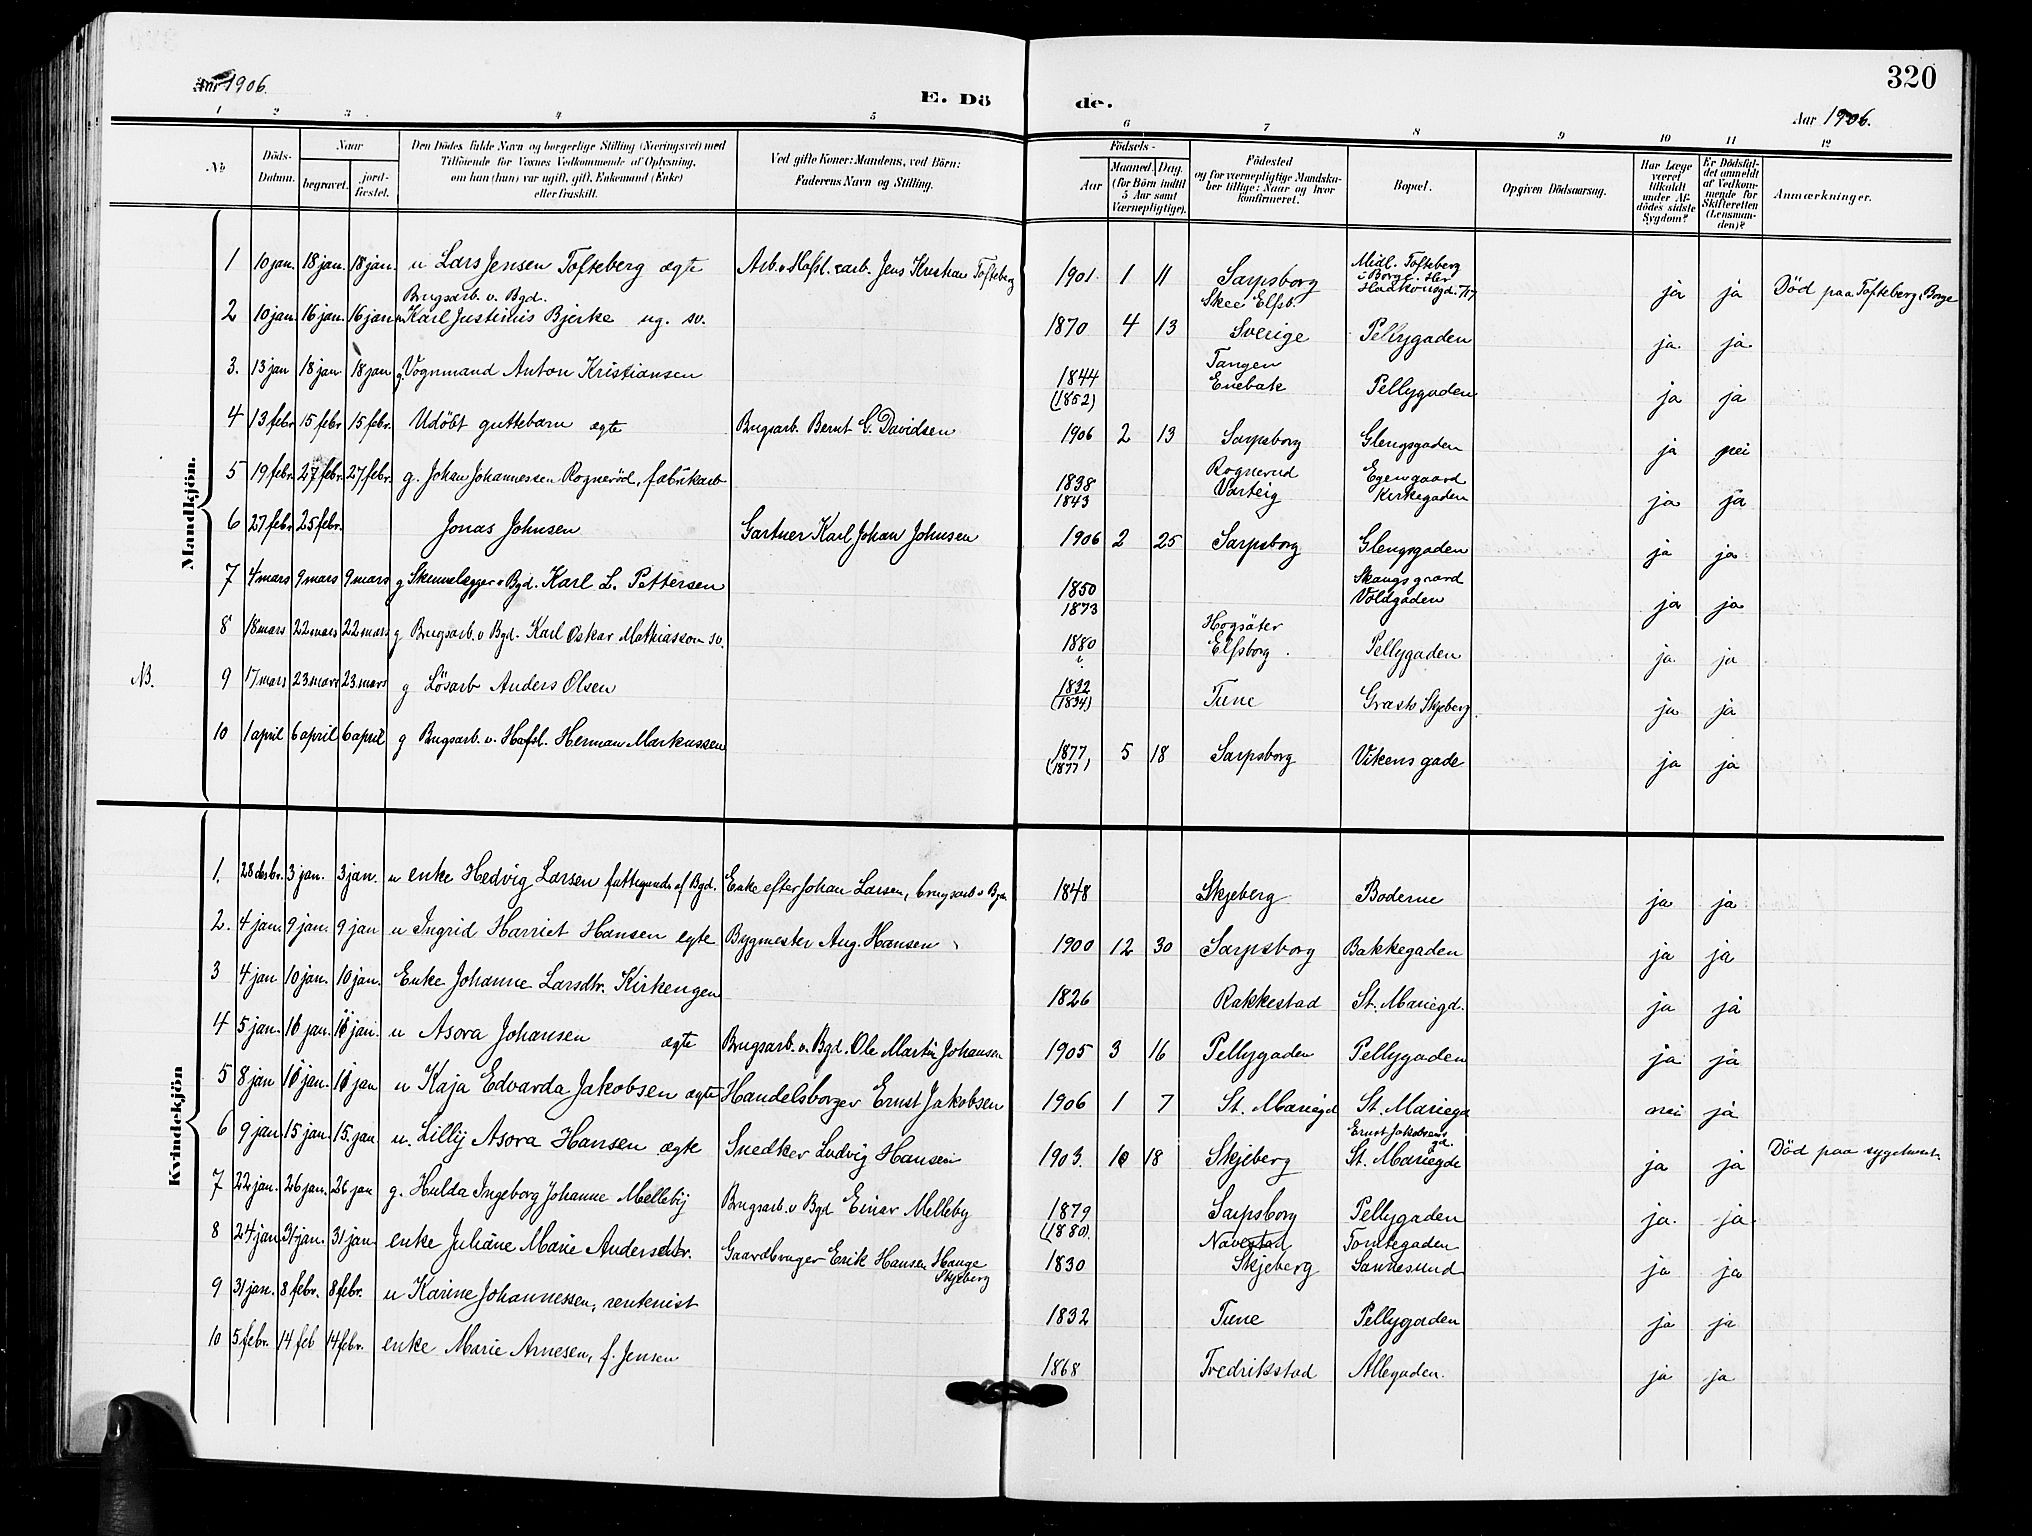 Aar 1906.
E. Dö de.
320
Aar 1906.
1 2 3 4 5 6 7 8 9 10 11 12
No
Döds-Datum.
Naar
begravet.
jord-fæstet.
Den Dödes fulde Navn og borgerlige Stilling (Næringsvei) med
Tilföiende for Voxnes Vedkommende af Oplysning,
om han (hun) var ugift, gift, Enkemand (Enke)
eller fraskilt.
Ved gifte Koner: Mandens, ved Börn:
Faderens Navn og Stilling.
Födsels-
Aar
Maaned. Dag.
(for Börn indtil
5 Aar samt
Værnepligtige).
Födested
og for værnepligtige Mandska-
ber tillige: Naar og hvor
konfirmeret.
Bopæl.
Opgiven Dödsaarsag.
Har Læge
været
tilkaldt
under Af-
dödes sidste
Sygdom?
Er Dödsfal-
det anmeldt
af Vedkom-
mende for
Skifteretten
(Lensman-
den)?
Anmærkninger.
Mandkjön.
1 10 jan. 18 jan. 18 jan. u Lars Jensen Tofteberg ægte Arb. v. Hafsl. carb. Jens Kristian Tofteberg 1901. 1 11 Sarpsborg Midl. Tofteberg i Borge. ja ja Död paa Tofteberg i Borge
Brugsarb. v. Bgd. Skee Elfsb.
2 10 jan. 16 jan. 16 jan Karl Justinius Bjerke ug. sv. 1870 4 13 Sverige Pellygaden ja. ja.
3. 13 jan 18 jan 18 jan g. Vognmand Anton Kristiansen 1844 (1852) Tangen Enebak Pellygaden ja ja
4 13 febr 15 febr 15 febr. Udöbt guttebarn ægte Brugsarb. Bernt C. Davidsen 1906 2 13 Sarpsborg Glengsgaden ja nei
5 19 febr. 27 febr. 27 febr. g. Johan Johannessen Rogneröd, fabrikarb 1838 1843 Rognerud Varteig Egengaard Kirkegaden ja ja
6 27 febr 25 febr. Jonas Johnsen Gartner Karl Johan Johnsen 1906 2 25 Sarpsborg Glengsgaden ja ja
7 4 mars 9 mars 9 mars g Skinnelægger v Bgd. Karl L. Pettersen 1850 1873 Skaugsgaard Voldgaden ja ja
8 18 mars 22 mars 22 mars g Brugsarb. v Bgd. Karl Oskar Mathiasson sv. 1880 Hogsäter Elfsborg. Pellygaden ja. ja
NB. 9 17 mars 23 mars 23. mars g Lösarb Anders Olsen 1832 (1834) Tune Graah Skjeberg. ja ja
10 1 april 6 april 6 april g Brugsarb. v. Hafsl. Herman Markussen 1877 (1877) 5 18 Sarpsborg Vikens gade ja ja
Kvindekjön
1. 28 desbr. 3 jan. 3 jan. u enke Hedvig Larsen fattigunds af Bgd. Enke efter Johan Larsen, brugsarb v Bgd 1848 Skjeberg Boderne ja ja
2. 4 jan. 9 jan. 9 jan u Ingrid Harriet Hansen egte Bygmester Aug. Hansen 1900 12 30 Sarpsborg Bakkegaden ja ja
3 4 jan 10 jan. 10 jan. Enke Johanne Larsdtr. Kirkengen 1826 Rakkestad St. Mariegd. ja ja
4 5 jan. 10 jan. 10 jan. u Asora Johansen ægte Brugsarb. v. Bgd. Ole Martin Johansen 1905 3 16 Pellygaden Pellygaden ja ja
5 8 jan 10 jan. 10 jan u Kaja Edvarda Jakobsen ægte Handelsborger Ernst Jakobsen 1906 1 7 St. Mariegd St. Mariegd nei ja
6 9 jan. 15 jan. 15. jan u. Lilly Asora Hansen ægte Snedker Ludvig Hansen 1903. 10 18 Skjeberg Ernst Jakobsens gd. St. Mariegde ja ja Död paa sygehuset.
7 22 jan. 26 jan. 26 jan g. Hulda Ingeborg Johanne Melleby Brugsarb. v Bgd Einar Melleby 1879 (1880) Sarpsborg Pellygaden ja. ja.
8 24 jan 31 jan. 31 jan. enke Juliane Marie Andersdtr. Gaardbruger Erik Hansen Hauge Skjeberg 1830 Navestad Skjeberg Tomtegaden Sannesund ja ja
9 31 jan. 8 febr. 8 febr. u Karine Johannessen, rentenist 1832 Tune Pellygaden ja ja
10 5 febr. 14 feb 14 febr. enke Marie Arnesen, f. Jensen 1868 Fredrikstad Allegaden. ja ja